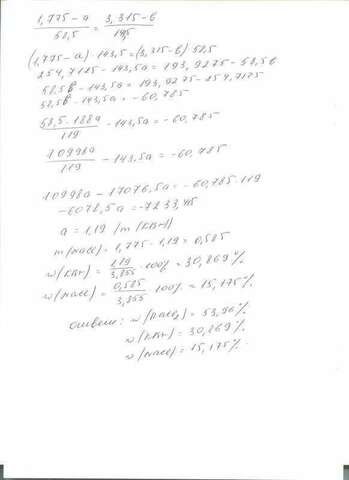 1,775-a / 58,5 = 3,315-в / 143,5
(1,775-a)·143,5=(3,315-в)·58,5
254,7125-143,5a=193,9275-58,5в
58,5в-143,5a=193,9275-254,7125
58,5в-143,5a=-60,785
58,5·188a / 119 -143,5a=-60,785
10998a / 119 -143,5a=-60,785
10998a-17076,5a=-60,785·119
-6078,5a=-7233,415
a=1,19 /m(KBr)
m(NaCl)=1,775-1,19=0,585
w(KBr)= 1,19 / 3,855 ·100%=30,869%
w(NaCl)= 0,585 / 3,855 ·100%=15,175%
ответ: w(BaCl2)=53,96%
w(KBr)=30,869%
w(NaCl)=15,175%